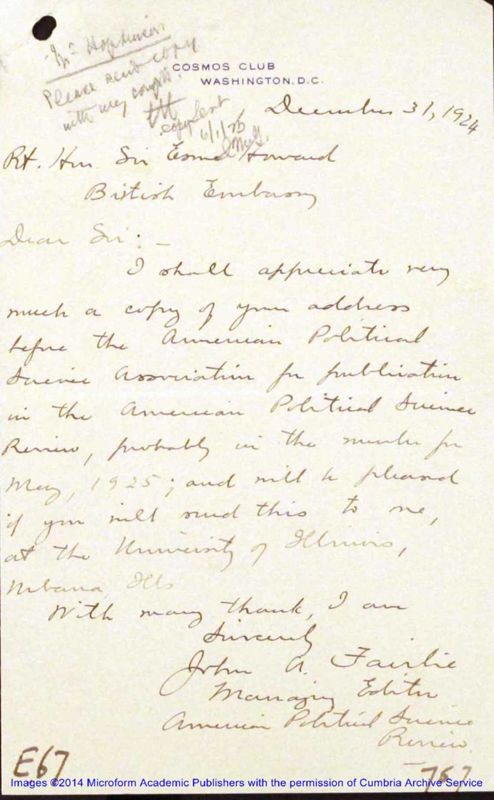 Mr Hopkinson
Please send copy
with my compts.
EH
COSMOS CLUB
WASHINGTON, D.C.
copy sent
6/1/25
December 31, 1924
Rt. Hon Sir Esme Howard
British Embassy
Dear Sir: –
I shall appreciate very
much a copy of your address
before the American Political
Science Association for publication
in the American Political Science
Review, probably in the number for
May, 1925; and will be pleased
if you will send this to me,
at the University of Illinois,
Urbana Ills
With many thanks, I am
Sincerely
John A. Fairlie
Managing Editor
American Political Science
Review.
E67
767
Images ©2014 Microform Academic Publishers with the permission of Cumbria Archive Service